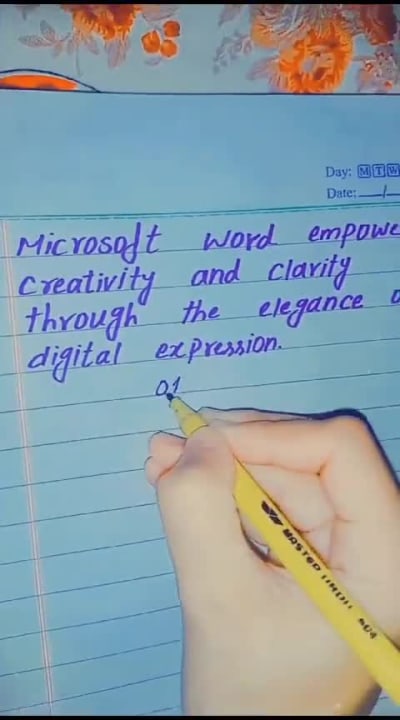 Day: M T W
Date: __/
Microsoft word empowe
creativity and clarity
through the elegance o
digital expression.
01